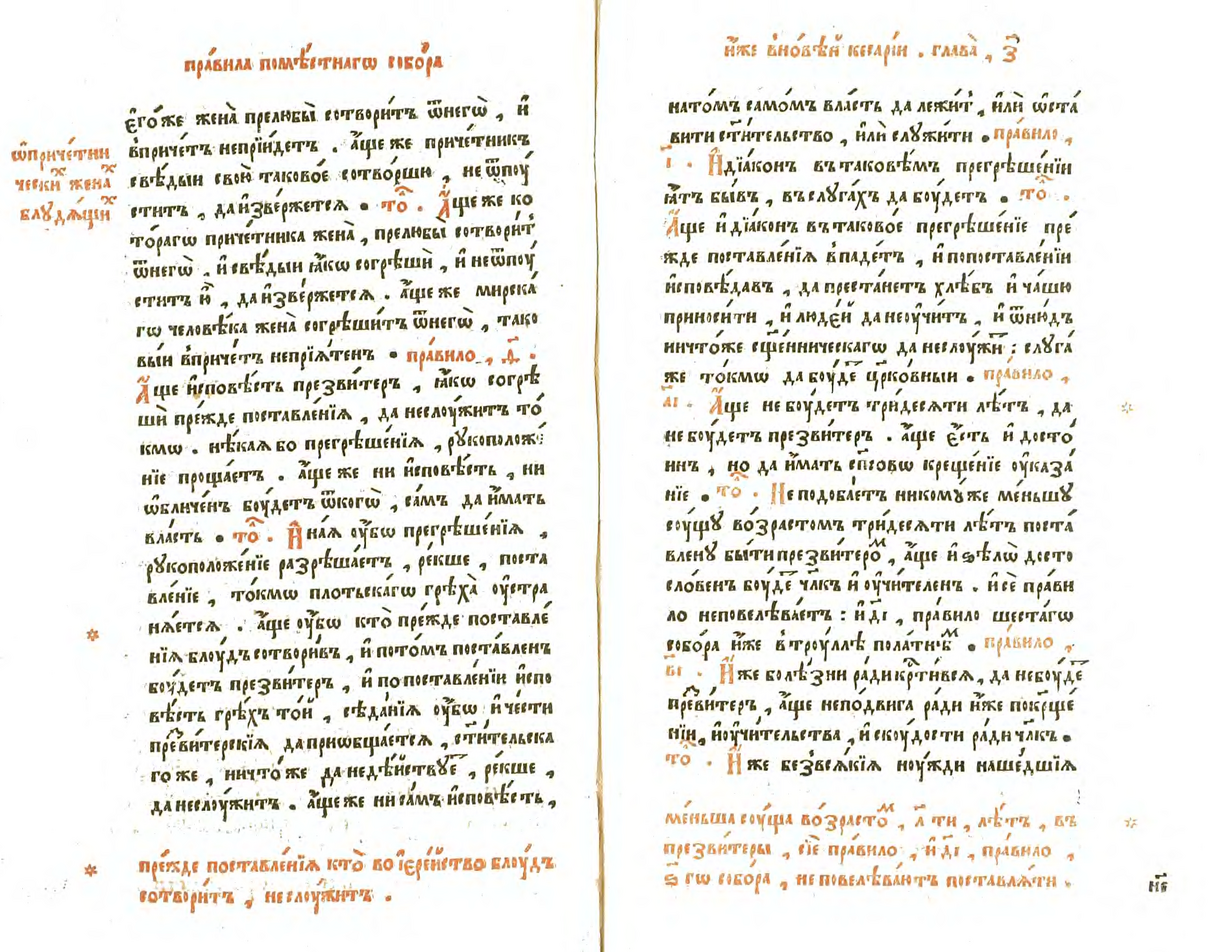 пра́вила помѣ́стнагѡ собо́ра
ѡ҆приче́тни
чески̑ жена̑
блудѧ́щи̑
є҆го́же жена̀ прелюбы̀ сотвори́тъ ѿнегѡ̀ , и҆
впри́четъ неприи́детъ . а҆́щеже приче́тникъ
свѣ́дыи свою̀ таково́е сотво́ршю , не ѿпоу́
ститъ , да и҆зве́ржетсѧ . то̑ . А҆́ще же ко
то́рагѡ приче́тника жена̀ , прелюбы̀ сотвори́т
ѿнегѡ̀ . и҆ свѣ́дыи ꙗ҆́кѡ согрѣшѝ , и҆ неѿпоу́
ститъ ю҆̀ , да и҆зве́ржетсѧ . а҆́ще же мирска́
гѡ человѣ́ка жена̀ согрѣши́тъ ѿнегѡ̀ , тако
вы́и впри́четъ неприѧ́тенъ . пра́вило , д҃ .
А҆́ще и҆сповѣ́сть презви́теръ , ꙗ҆́кѡ согрѣ
шѝ пре́жде поставле́нїѧ , да неслоу́житъ то́
кмѡ . нѣ́каѧ бо прегрѣше́нїѧ , рꙋкоположе́
нїе проща́етъ . а҆́ще же ни и҆сповѣ́сть , ни
ѡ҆бличе́н боу́детъ ѿкогѡ̀ , са́мъ да и҆́мать
вла́сть . то̑ . И҆на́ѧ оу҆́бѡ прегрѣше́нїѧ ,
рꙋкоположе́нїе разрѣша́етъ , ре́кше , поста
вле́нїе , то́кмѡ пло́тьскагѡ грѣха̀ оу҆стра
нѧ́етсѧ . а҆́ще оу҆́бѡ кто̀ пре́жде поставле́
нїѧ блоу́дъ сотвори́въ , и҆ пото́мъ поста́вленъ
боу́детъ презви́теръ , и҆ по поставле́нїи и҆спо
вѣ́сть грѣ́хъ то́и , сѣда́нїѧ оу҆́бѡ и҆ че́сти
пре́витерскїѧ да приѡбща́етсѧ , ст҃и́тельска
го же , ничто́же да недѣ́йствꙋе , ре́кше ,
да неслоу́житъ . а҆́ще же ни са́мъ и҆сповѣ́сть ,
пре́жде поставле́нїѧ кто̀ во і҆ере́йство блоу́дъ
сотвори́тъ , не слоу́житъ .
и҆́же вно́вѣй кеса́рїи . глава̀ , з҃
натóмъ самóмъ вла́сть да лежи́т , и҆лѝ ѡ҆ста́
вити ст҃и́тельство , и҆лѝ слꙋжи́ти . пра́вило ,
і҃ . И҆ дїа́конъ въ тако́вѣмъ прегрѣше́нїи
ꙗ҆́тъ бы́въ , въ слꙋга́хъ да боу́детъ . то̑ .
А҆́ще и҆ дїа́конъ въ таково́е прегрѣше́нїе пре́
жде поставле́нїѧ впаде́тъ , и҆ по поставле́нїи
и҆сповѣ́давъ , да преста́нетъ хлѣ́бъ и҆ ча́шю
приноси́ти , и҆ люде́й да неоу́читъ , и҆ ѿню́дъ
ничто́же сщ҃е́нническагѡ да неслоу́жи : слꙋга́
же то́кмѡ да боу́де цр҃ко́вныи . пра́вило ,
а҃і . А҆́ще не боу́детъ три́десѧти лѣ́тъ , да
не боу́детъ презви́теръ . а҆́ще є҆́сть и҆ досто́
инъ , но да и҆́мать сп҃со́вѡ креще́нїе оу҆каза́
нїе . то̑ . Не подоба́етъ никомꙋ́же ме́ньшꙋ
соу́щꙋ во́зрастомъ три́десѧти лѣ́тъ поста́
вленꙋ бы́ти презви́теро , а҆́ще и҆ ѕѣлѡ̀ досто
сло́венъ боу́де чл҃къ и҆ оу҆чи́теленъ . и҆ сѐ пра́ви
ло неповелѣва́етъ : и҆ д҃і , пра́вило шеста́гѡ
собо́ра и҆́же в тро́улле пола́тнѣ . пра́вило ,
в҃і . И҆́же болѣ́зни ра́ди кр҃ти́всѧ , да небоу́де
пре́витеръ , а҆́ще непо́двига ра́ди и҆́же покрще́
нїи , и҆ оу҆чи́тельства , и҆ скоу́дости ра́ди чл҃къ .
то̑ . И҆́же безвсѧ́кїѧ ноу́жди наше́дшїѧ
ме́ньша соу́ща во́зрасто , л҃ ти , лѣ́тъ , въ
презви́теры , сїѐ пра́вило , и҆ д҃і , пра́вило ,
ѕ҃ гѡ собо́ра , не повелѣва́ютъ поставлѧ́ти .
н҃е